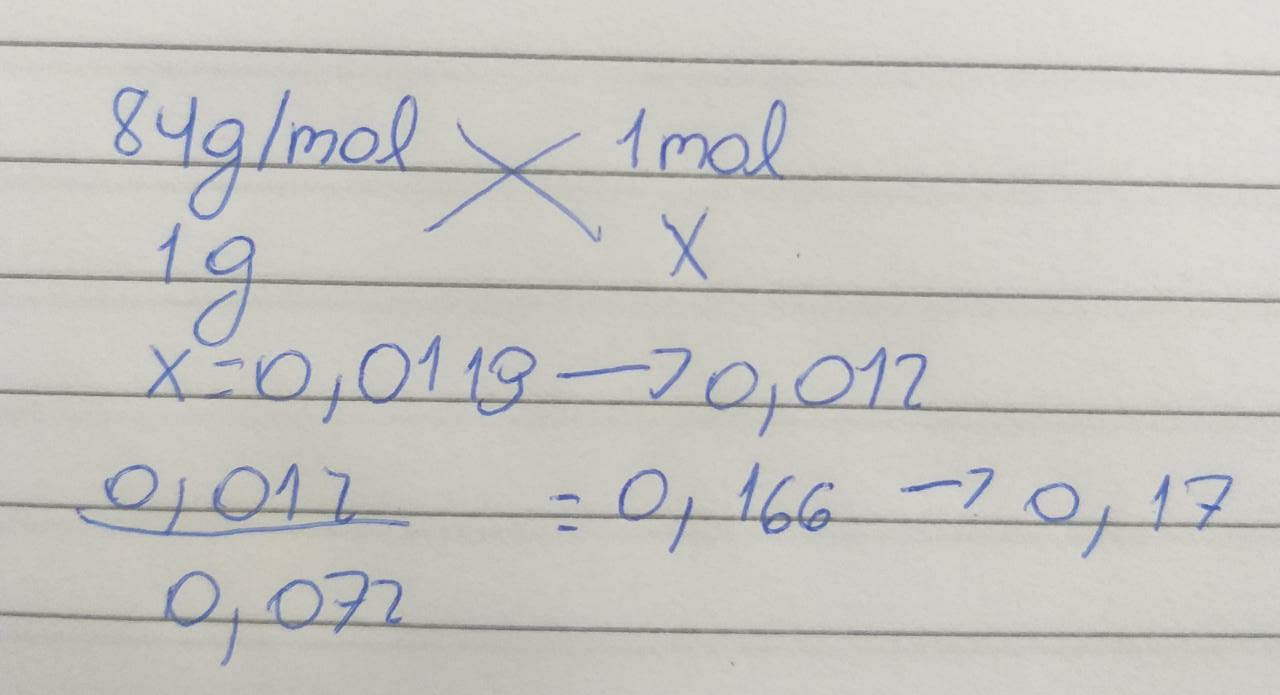 84g/mol 1mol
1g X
x=0,0119 → 0,012
0,012 = 0,166 → 0,17
0,072